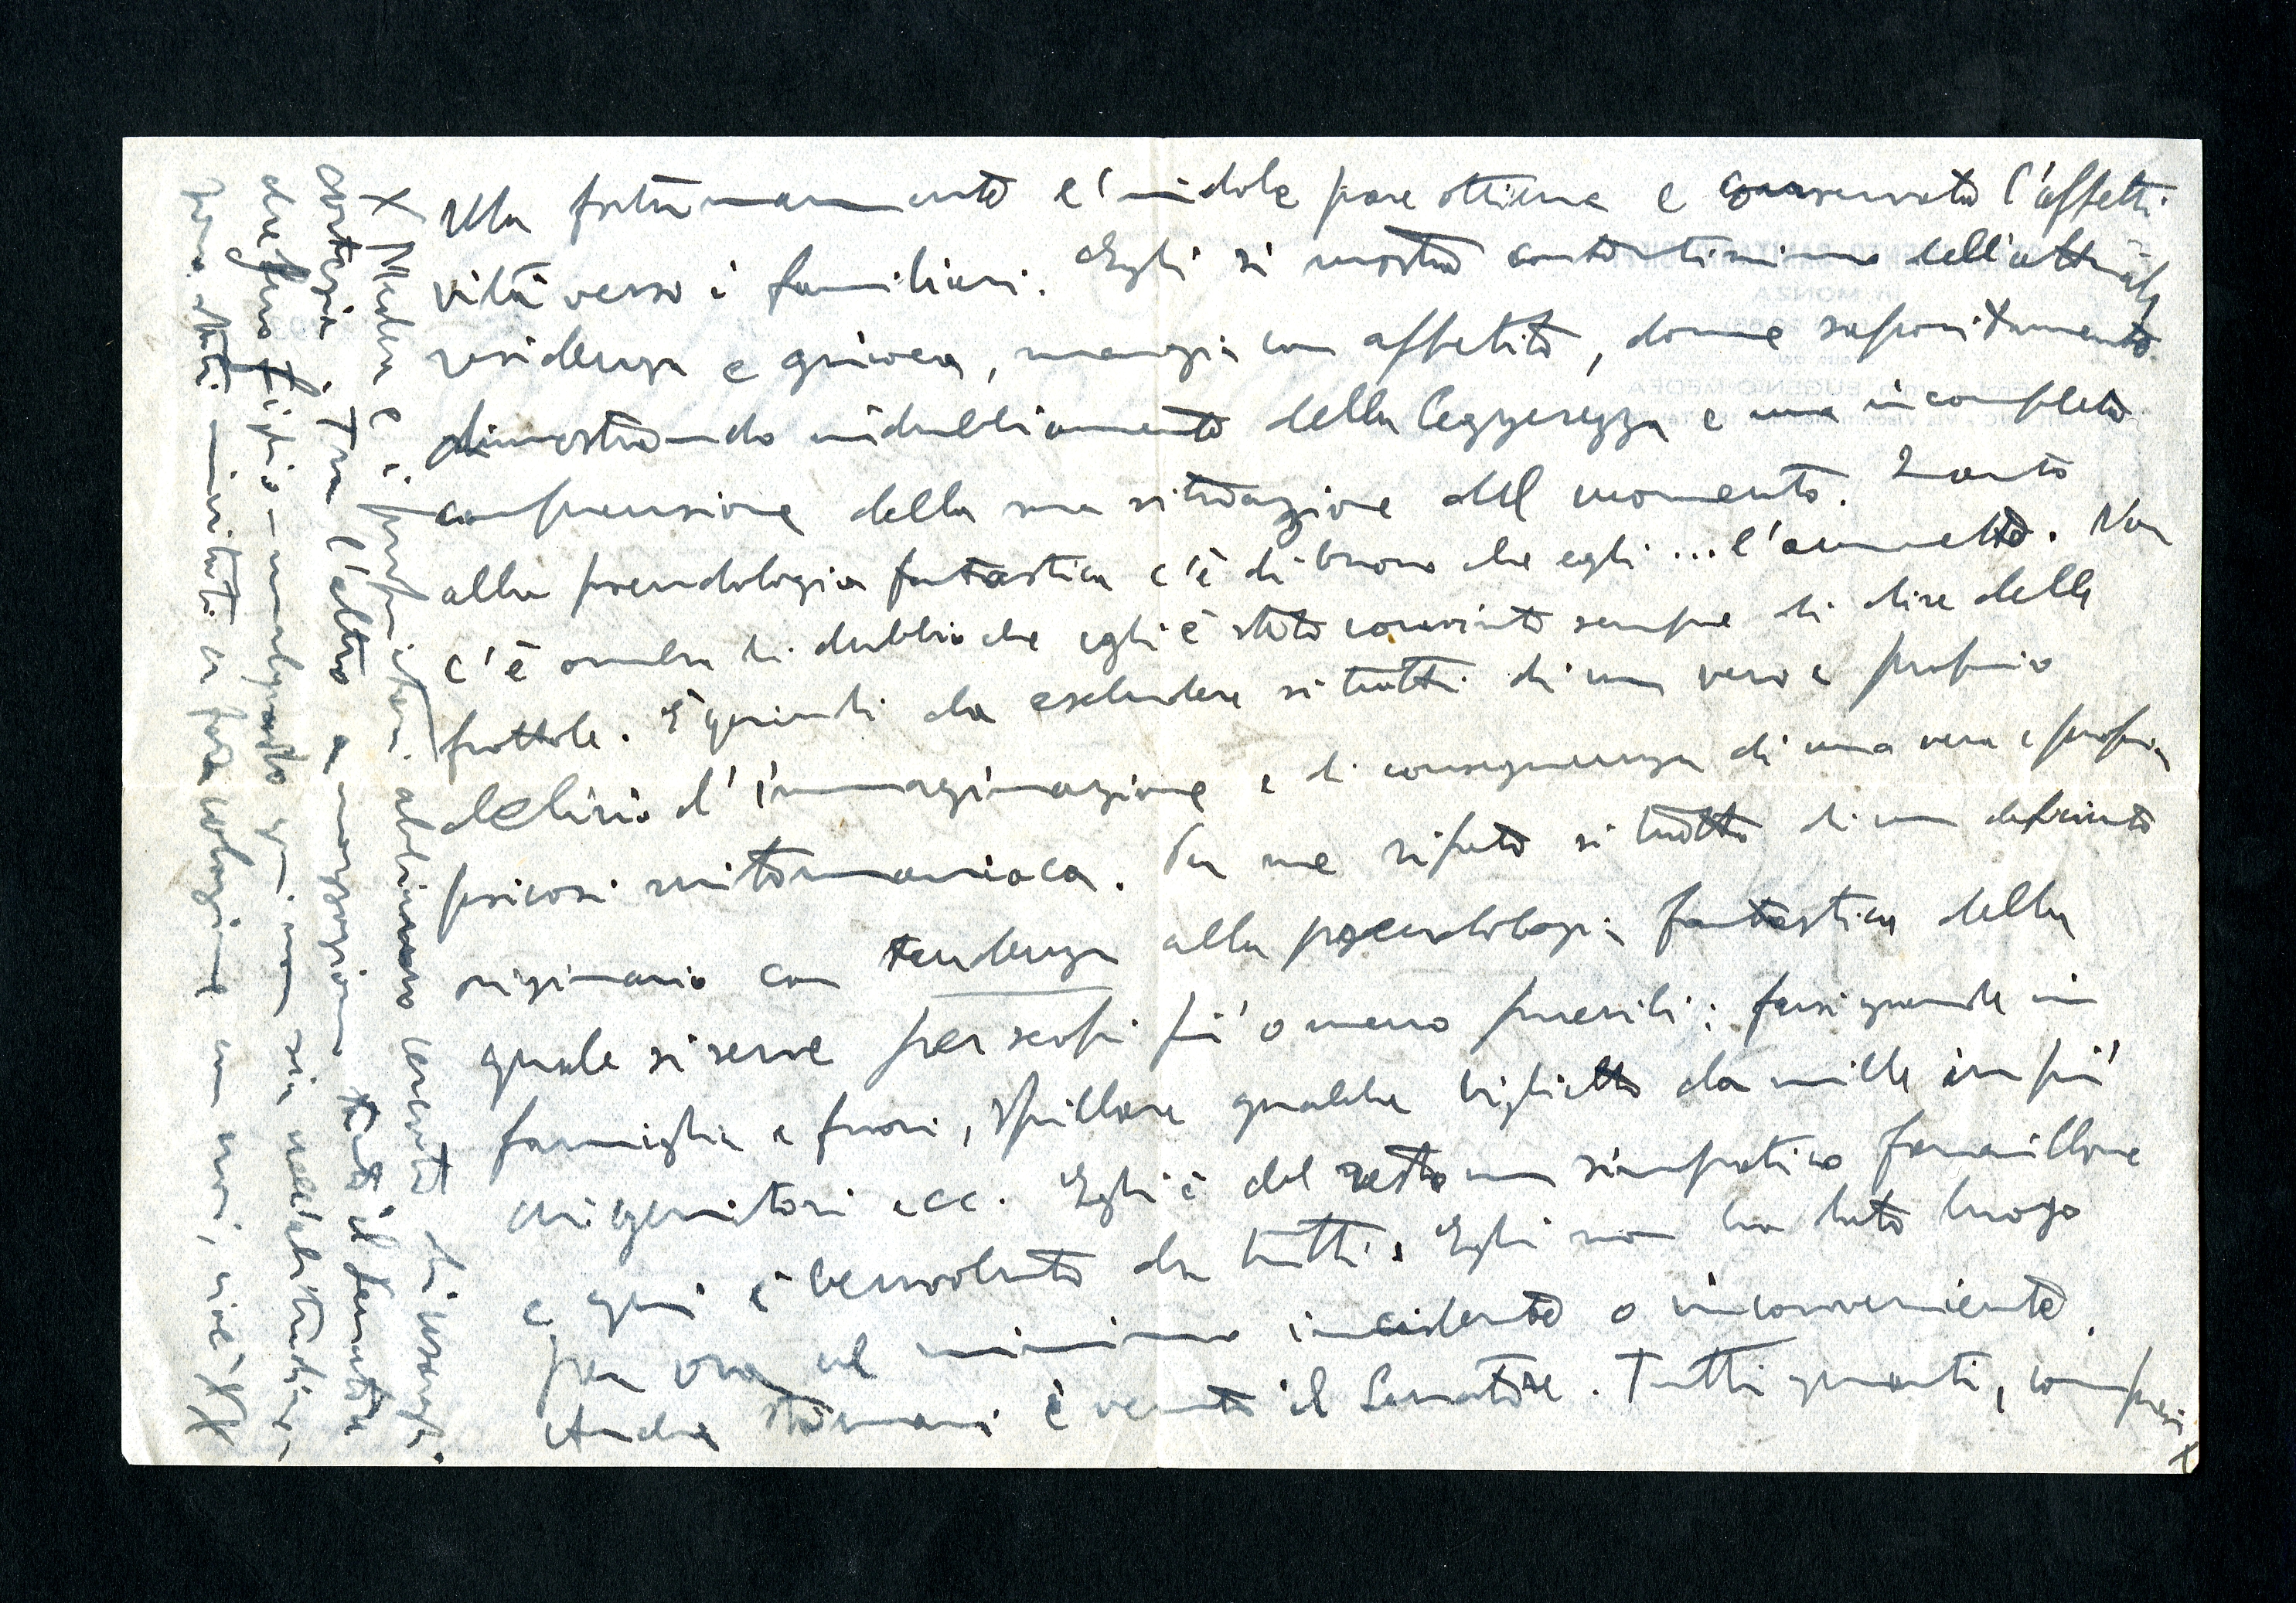 Ma fortunatamente l'indole pare ottima e conservata l'affetti-
vità verso i familiari. Egli si mostra contentissimo dell'attuale
residenza e giuoca, mangia con appetito, dorme saporitamente
dimostrando indubbiamente della leggerezza e una incompleta
comprensione della sua situazione del momento. Quanto
alla pseudologia fantastica c'è di buono che egli ... l'ammette. Non
c'è ombra di dubbio che egli è stato convinto sempre di dire delle
frottole. È quindi da escludere si tratti di un vero e proprio
delirio d'immaginazione e di conseguenza di una vera e propria
psicosi mitomaniaca. Per me ripeto si tratta di un deficiente
originario con tendenza alla pseudologia fantastica della
quale si serve per scopi più o meno puerili: farsi grande in
famiglia e fuori, spillare qualche biglietto da mille in più
ai genitori ecc. Egli è del resto un simpatico
e qui è benvoluto da tutti. Egli non ha dato luogo
per ora al minimo incidente o inconveniente.
Anche stamani è venuto il Senatore. Tutti quanti, compresi
X
X Medea e i abbiamo cercato di usargli
cortesia. Tra l'altro a Tanto il Senatore
che suo figlio
stati invitati a far colazione con noi, cioè XX